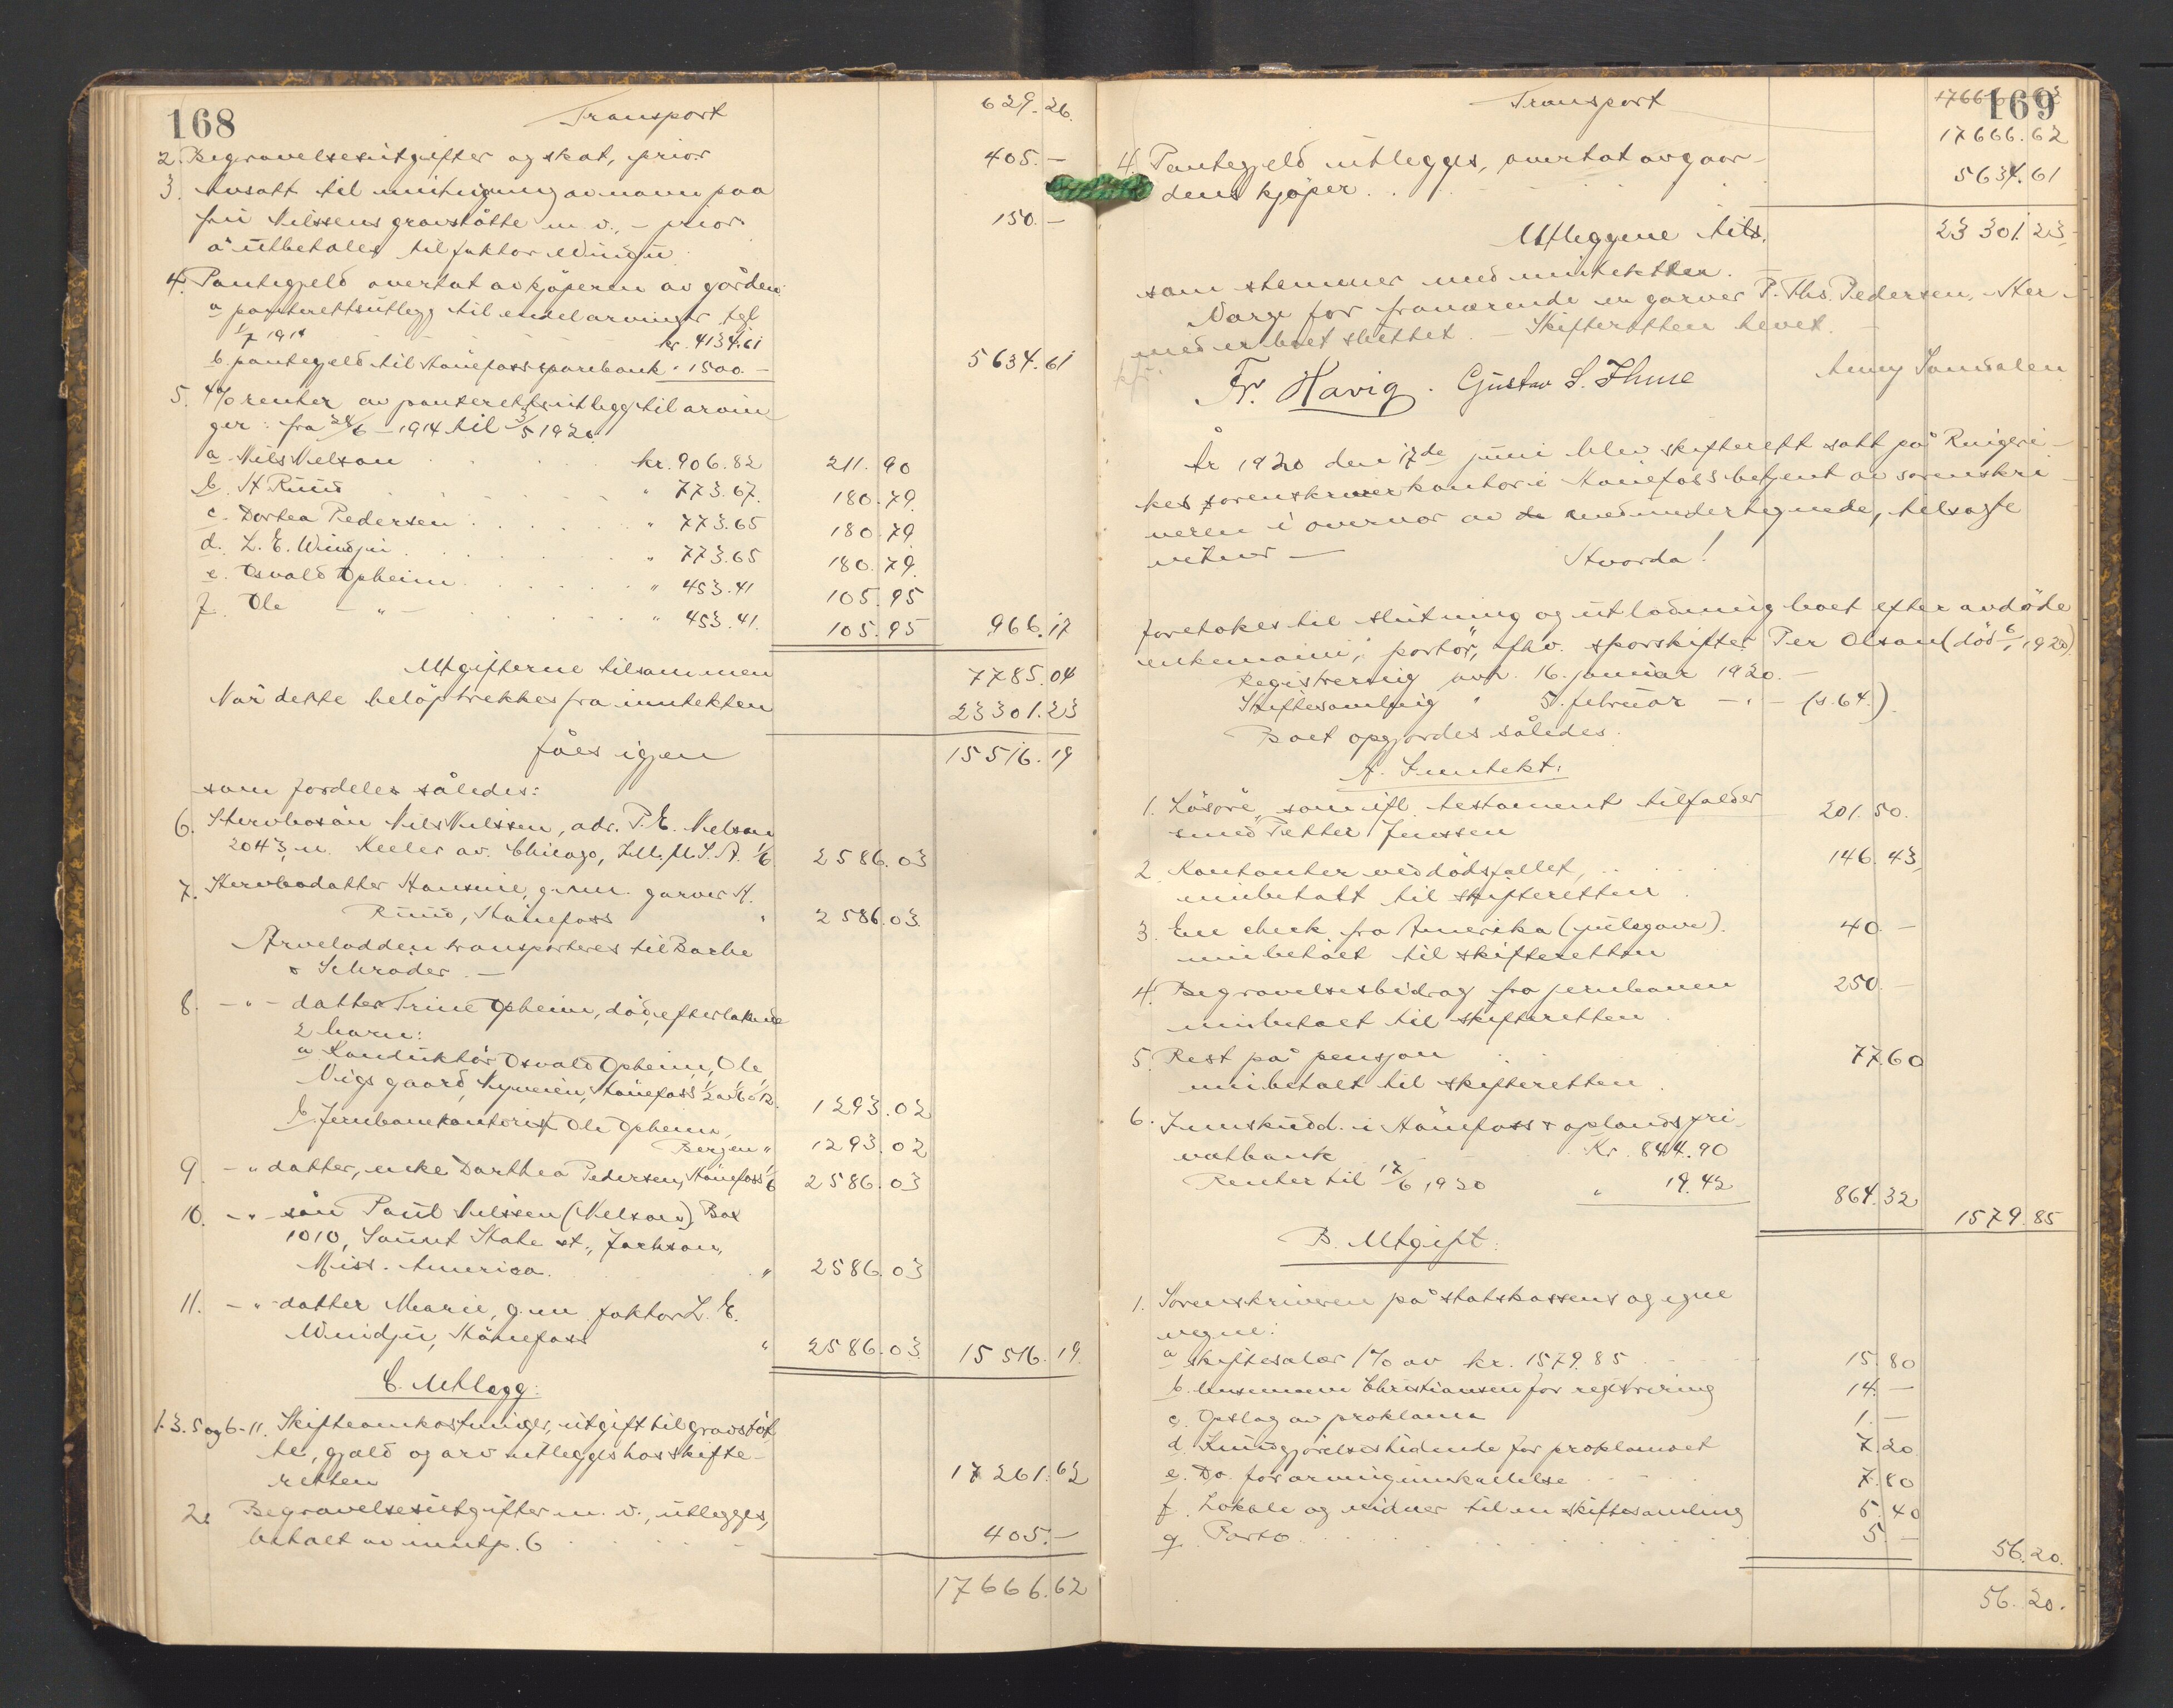 168
Transport 629.26.
2. Begravelsesutgifter og skat, prior 405.–
3. Avsatt til innhugning av navn paa
fru Nilssens gravstötte m.v., – prior 150.–
a utbetales til faktor Windju
4. Pantegjeld overtat av kjöperen av gården
a panterettsutlegg til endel arvinger tgl
1/7 1914 kr. 4134.61
b. pantegjeld til Hönefoss sparebank " 1500.– 5634.61
5. 4% renter av panterettsutlegg til arvin
ger: fra 24/6 – 1914 til 3/5 1920.
a Nils Nelson kr. 906.82 211.90
b. H Ruud " 773.67. 180.79
c. Dortea Pedersen " 773.65 180.79
d. L. E. Windju " 773.65 180.79.
e. Osvald Opheim " 453.41 105.95
f. Ole – " – " 453.41. 105.95 966.17
Utgifterne tilsammen 7785.04
Når dette belöp trekkes fra inntekten 23301.23
fåes igjen 15516.19
som fordeles således:
6. Stervbosön Nils Nilssen, adr. P. E. Nelson
2043, n. Keeler av. Chicago, Ill. U.S.A. 1/6 2586.03
7. Stervbodatter Hansine, g. m. garver H.
Ruud, Hönefoss " 2586.03.
Arvelodden transporteres til Bache
& Schrøder. –
8. – " – datter Trine Opheim, död, efterlatende
2 barn:
a Konduktör Osvald Opheim, Ole
Vigs gaard, Nymoen, Hönefoss 1/2 av 1/6 o: 1/12. 1293.02
b. Jernbanekontorist Ole Opheim,
Bergen " 1293.02
9. – " datter, enke Dorthea Pedersen, Hönefoss 1/6 2586.03
10. – " – sön Paul Nilssen (Nelson), Box
1010, Sount State st., Jackson,
Miss. America. " 2586.03
11. – " – datter Marie, g. m. faktor L. E.
Windju, Hönefoss " 2586.03. 15516.19.
C. Utlegg:
1. 3. 5 og 6-11. Skifteomkostninger, utgift til gravstöt
te, gjæld og arv utlegges hos skifte-
retten 17261.62
2. Begravelsesutgifter m. v., utlegges,
betalt av inntp. 6 405.–
17666.62
169
Transport 17666.62
17666.62
4. Pantegjeld utlegges, overtat av gaar-
dens kjöper 5634.61
Utleggene tils. 23301.23
som stemmer med inntekten.
Verge for fraværende er garver P. Ths. Pedersen. Her-
med er boet sluttet. – Skifteretten hevet. –
Fr. Havig. Gustav S. Ihme Anny Sandalen
År 1920 den 17de juni blev skifterett satt på Ringeri-
kes sorenskriverkontor i Hönefoss betjent av sorenskri-
veren i overvær av de medundertegnede, tilsagte
vidner –
Hvorda!
foretokes til slutning og utlodning boet efter avdöde
enkemann, portör, fhv. sporskifter Per Olsen (död 6/1 1920).
Registrering avh. 16. januar 1920. –
Skiftesamling " 5. februar – " – (s. 64.).
Boet opgjordes således.
A. Inntekt:
1. Lösöre, som ifl. testament tilfalder
smed Petter Jenssen 201.50.
2. Kontanter ved dödsfallet, 146.43,
innbetalt til skifteretten.
3. En check fra Amerika (julegave). 40.–
innbetalt til skifteretten
4. Begravelsesbidrag fra jernbanen 250.–
innbetalt til skifteretten.
5. Rest på pensjon 77.60
innbetalt til skifteretten.
6. Innskudd i Hönefoss & oplands pri-
vatbank Kr. 844.90
Renter til 17/6 1920 " 19.42 864.32 1579.85
B. Utgift:
1. Sorenskriveren på statskassens og egne
vegne:
a skiftesalær 1% av kr. 1579.85 15.80
b. lensmann Christiansen for registrering 14.–
c. Opslag av proklama 1.–
d. Kundgjörelsestidende for proklamaet 7.20.
e. Do. for arvinginnkallelse 7.80
f. Lokale og vidner til en skiftesamling 5.40
g. Porto 5.– 56.20.
56.20.